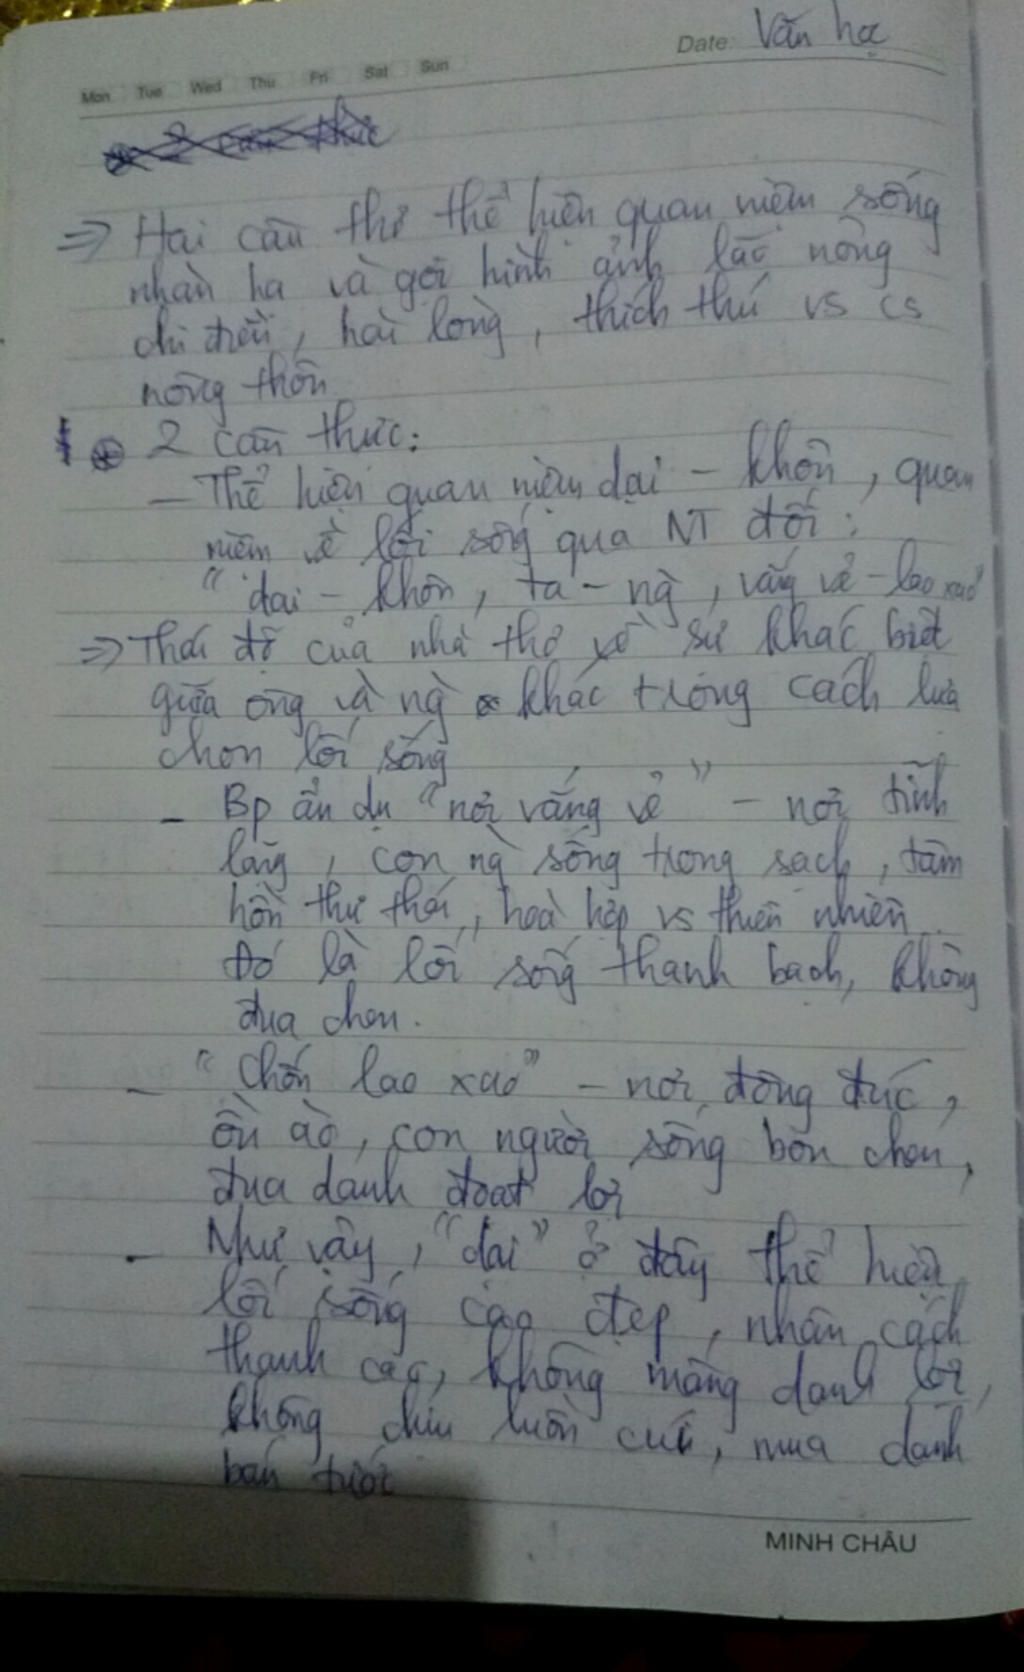 Date: Văn học
Mon Tue Wed Thu Fri Sat Sun
⇒ Hai câu thơ thể hiện quan niệm sống
nhàn hạ và gợi hình ảnh lão nông
chi điền, hài lòng, thích thú vs cs
nông thôn
2 câu thực:
- Thể hiện quan niệm dại - khôn, quan
niệm về lối sống qua NT đối:
"dại - khôn, ta - ng, vắng vẻ - lao xao"
⇒ Thái độ của nhà thơ về sự khác biệt
giữa ông và ng khác trong cách lựa
chọn lối sống
- Bp ẩn dụ "nơi vắng vẻ" - nơi tĩnh
lặng, con ng sống trong sạch, tâm
hồn thư thái, hoà hợp vs thiên nhiên.
Đó là lối sống thanh bạch, không
đua chen.
- "Chốn lao xao" - nơi đông đúc,
ồn ào, con người sống bon chen,
đua danh đoạt lợi
- Như vậy, "dại" ở đây thể hiện
lối sống cao đẹp, nhân cách
thanh cao, không màng danh lợi,
không chịu luồn cúi, mua danh
bán tước
MINH CHÂU